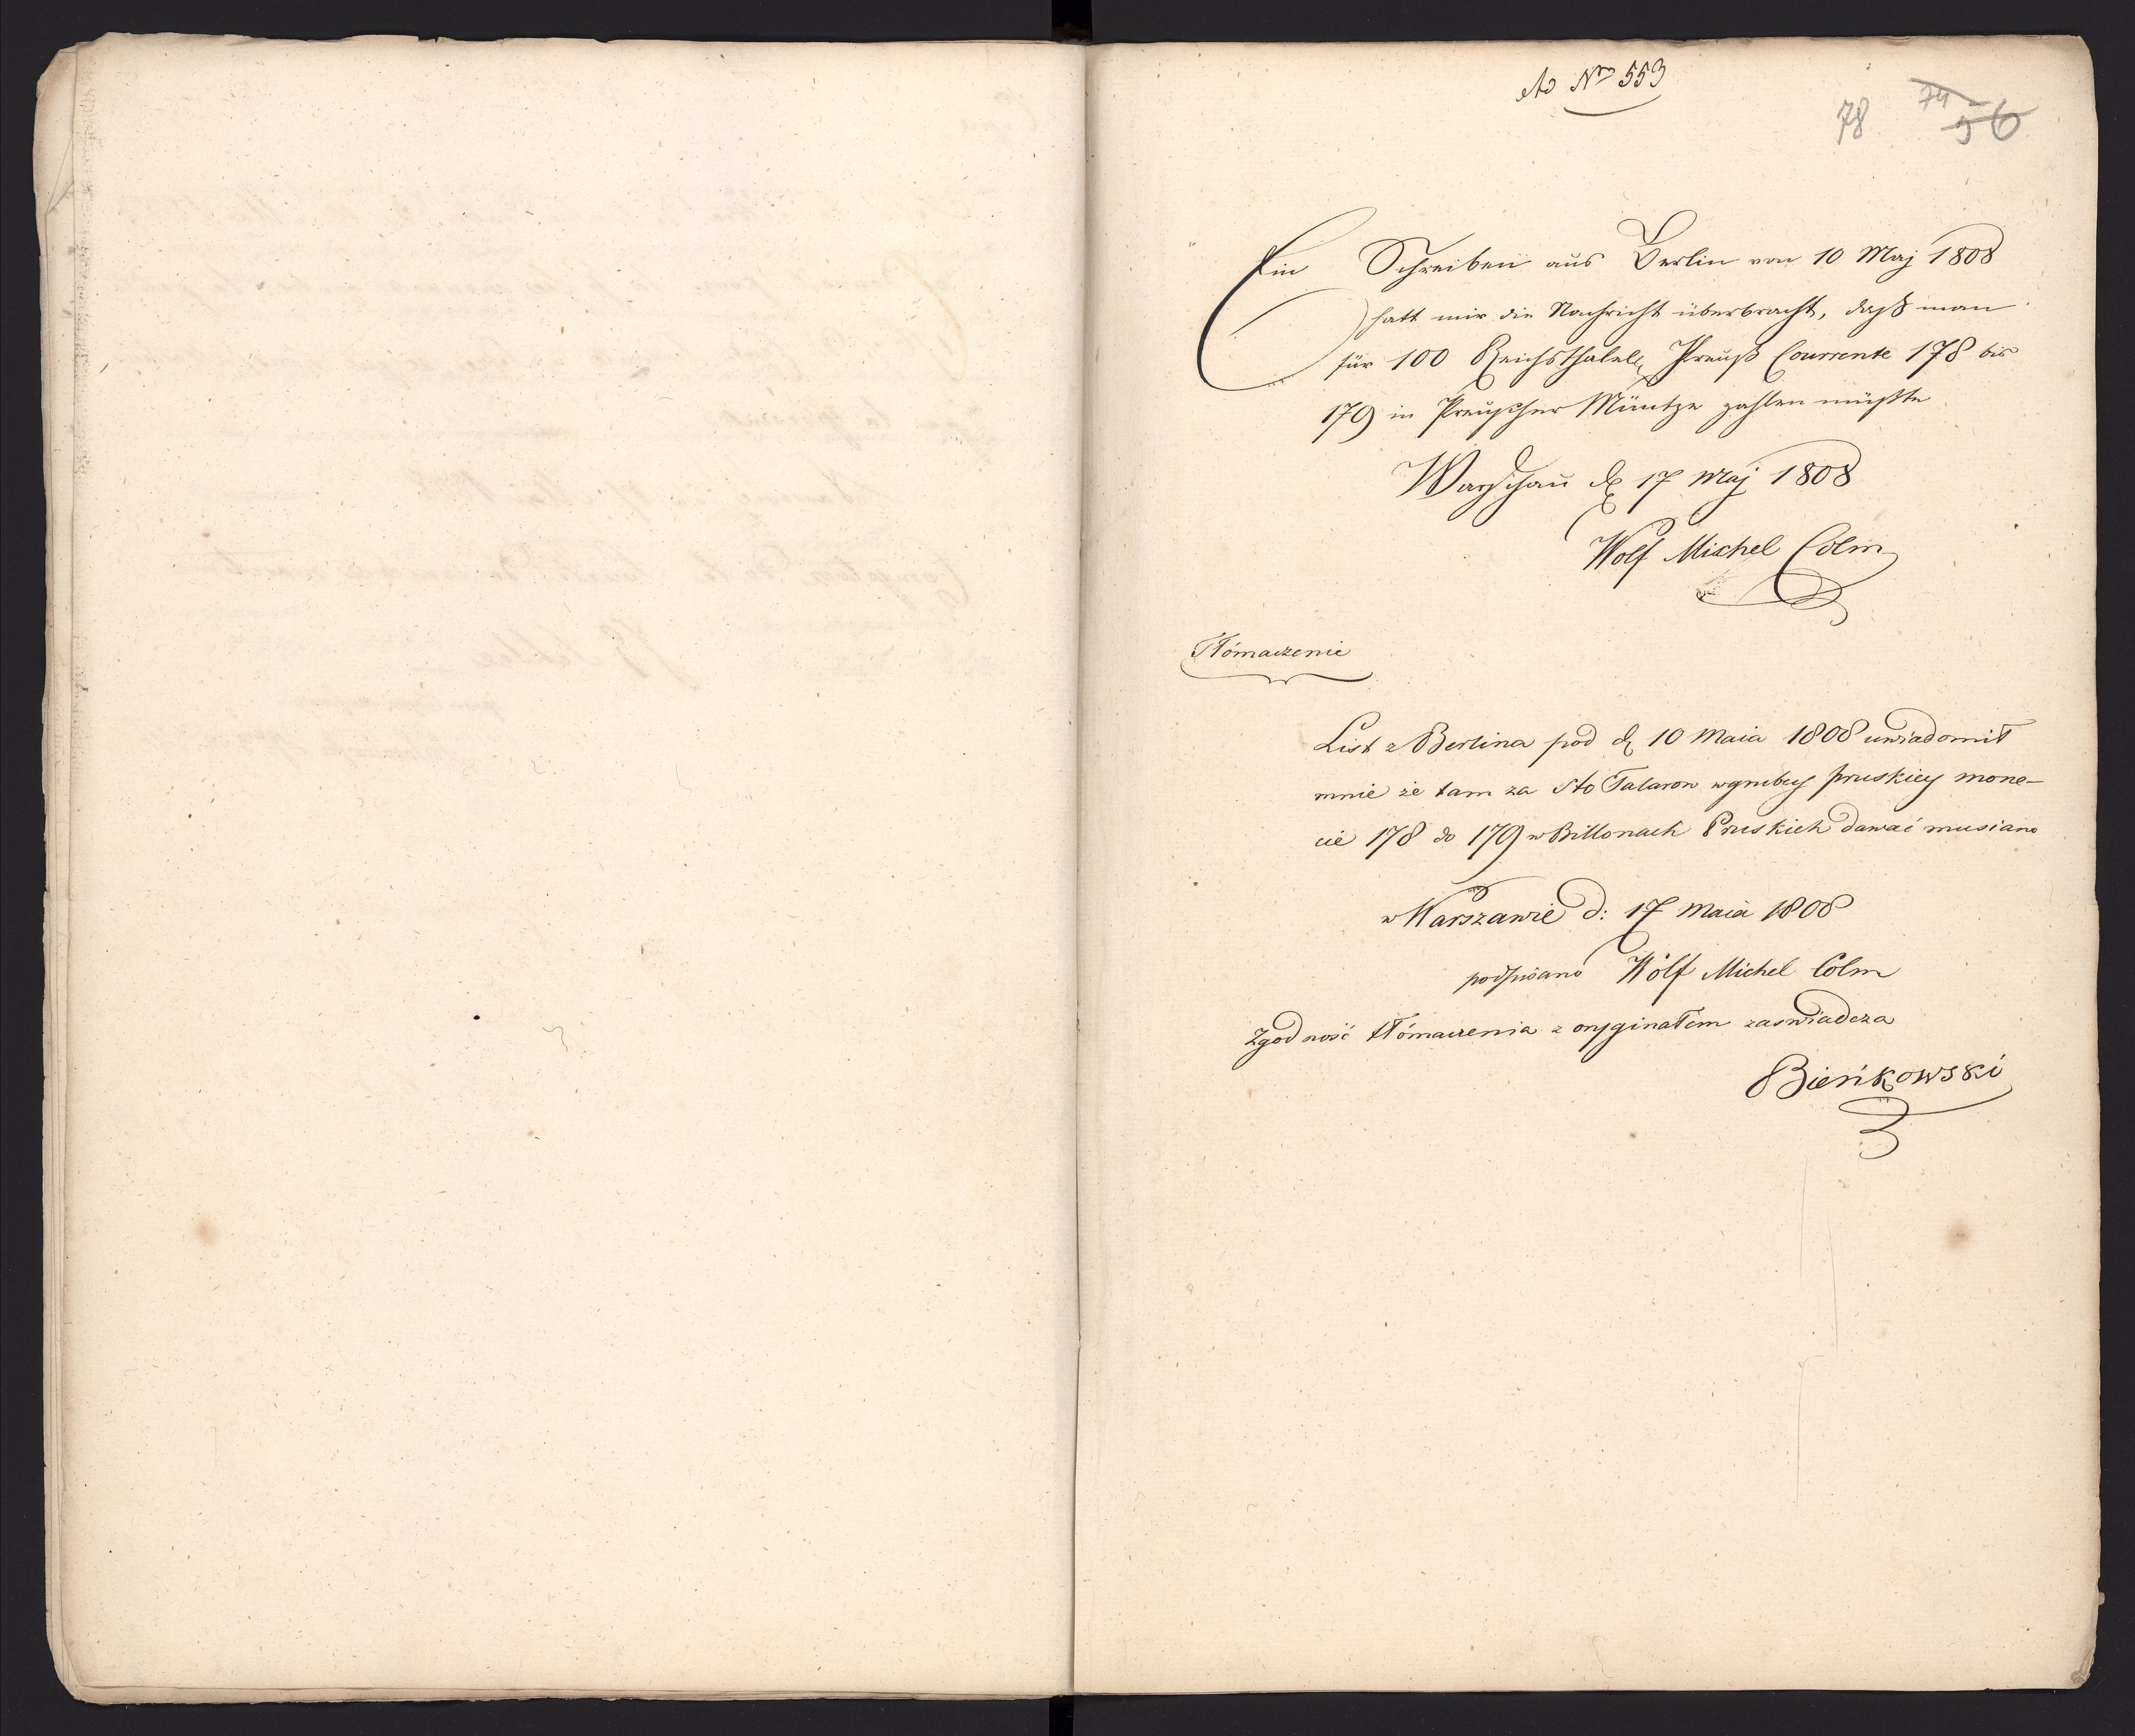 Ad Nro 553
78 74 56
Ein Schreiben aus Berlin von 10 Maj 1808
hatt mir die Nachricht überbracht, daß man
für 100 Reichsthaler Preuß Courrente 178 bis
179 in Preußcher Müntze zahlen müßte
Warschau d 17 Maj 1808
Wolf Michel Colm
Tłómaczenie
List z Berlina pod d 10 Maia 1808 uwiadomił
mnie że tam za sto Talarow w grubey pruskiey mone-
cie 178 do 179 w Billonach Pruskich dawać musiano
w Warszawie d: 17 Maia 1808
podpisano Wolf Michel Colm
Zgodność tłómaczenia z oryginałem zaswiadcza
Bieńkowski